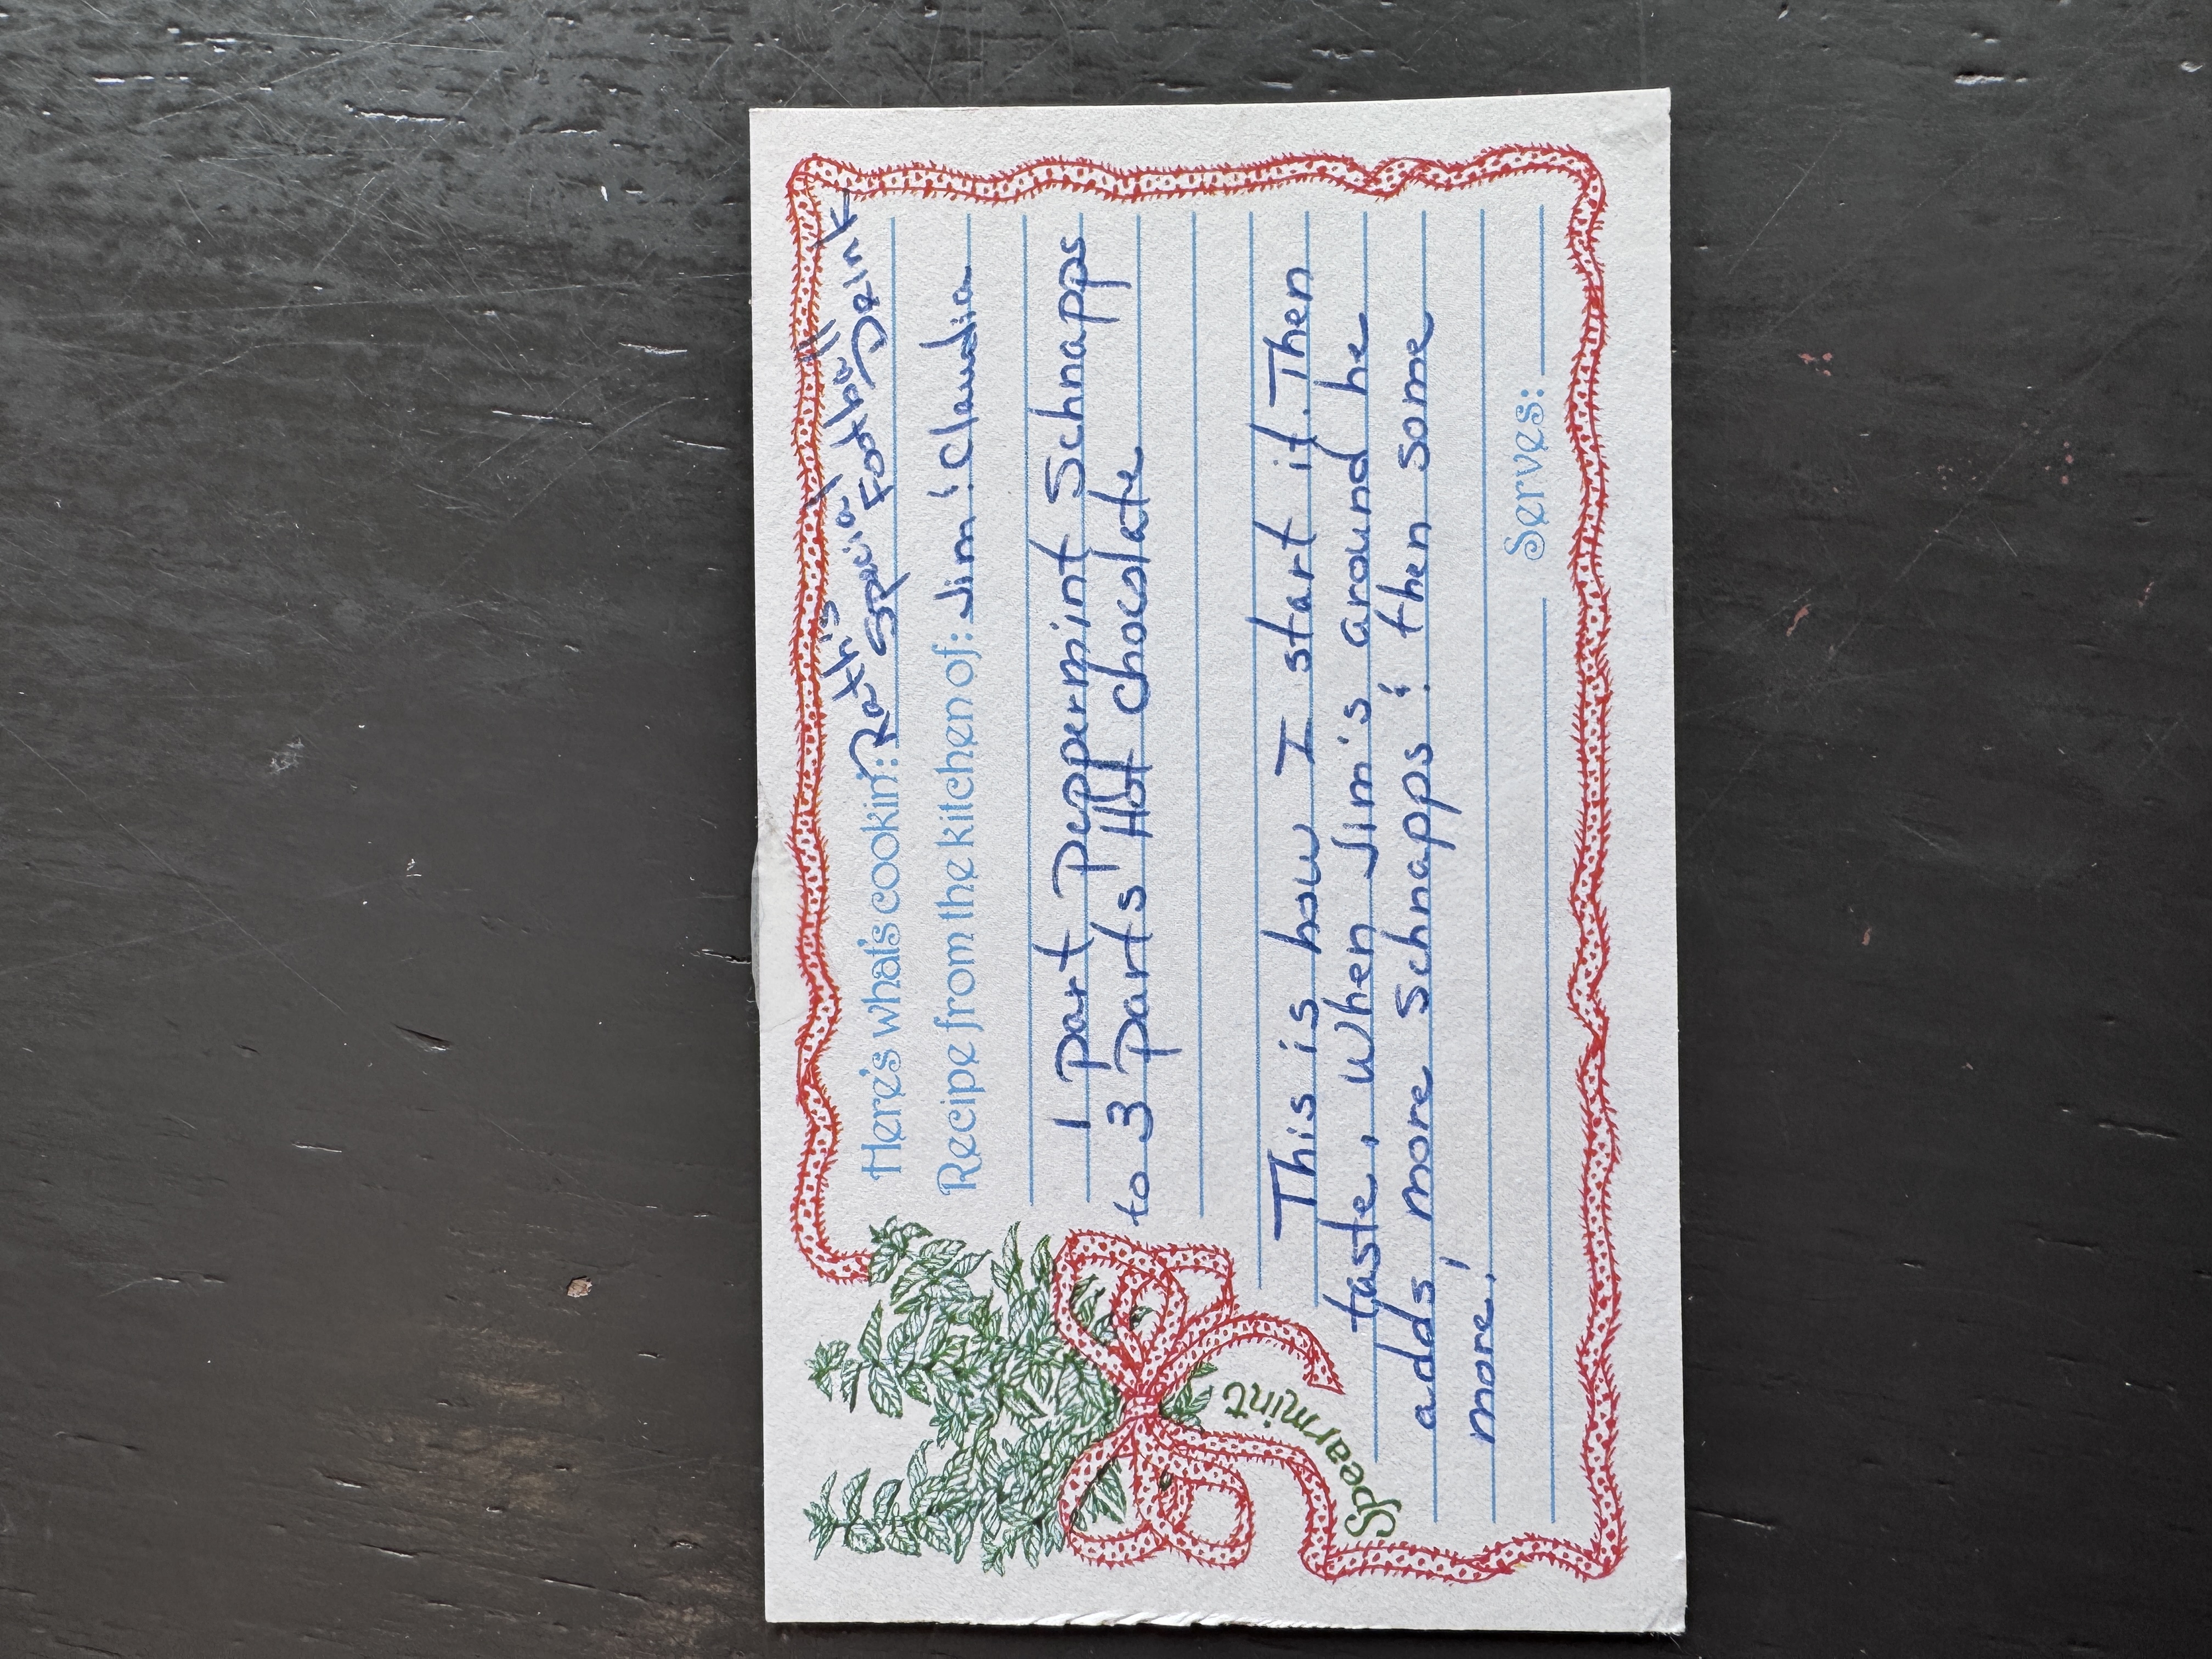 Here's what's cookin': Rathis Special Football Drink
Recipe from the kitchen of: Jim & Claudia
1 part Peppermint Schnapps
to 3 parts Hot chocolate
This is how I start it. Then
taste, when Jim's around he
adds more schnapps & then some
more!
Serves:
Spearmint